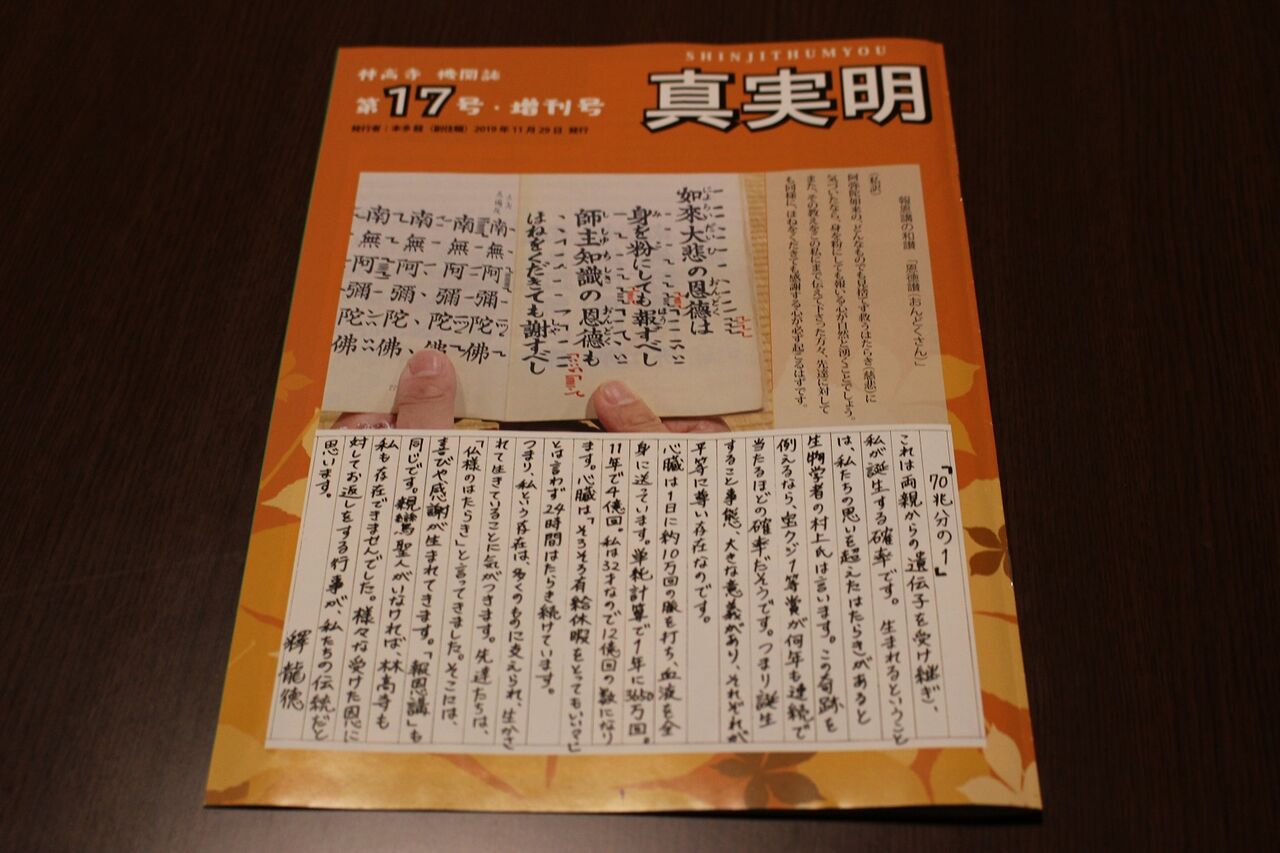 SHINJITHUMYOU
真実明
林高寺 機関誌
第17号・増刊号
2019年11月29日 発行
報恩講の和讃 「恩徳讃(おんどくさん)」
(私訳)
阿弥陀如来の、どんなものでも見捨てず救うはたらき(慈悲)に
気づいたなら、身を粉にしても報いる心が自然と湧くことでしょう。
また、その教えをこの私にまで伝えて下さった方々、先達に対して
も同様に、ほねをくだきても感謝する心が必ず起こるはずです。
如來大悲の恩德は
身を粉にしても報ずべし
師主知識の恩德も
ほねをくだきても謝すべし
南無阿彌陀佛
南無阿彌陀佛
南無阿彌陀佛
南無阿彌陀佛
「70兆分の1」
これは両親からの遺伝子を受け継ぎ、
私が誕生する確率です。生まれるということ
は、私たちの思いを超えたはたらきがあると
生物学者の村上氏は言います。この奇跡を
例えるなら、宝クジ1等賞が何年も連続で
当たるほどの確率だそうです。つまり誕生
すること事態、大きな意義があり、それぞれが
平等に尊い存在なのです。
心臓は1日に約10万回の脈を打ち、血液を全
身に送っています。単純計算で1年に3650万回。
11年で4億回。私は32才なので12億回の数になり
ます。心臓は「そろそろ有給休暇をとってもいい?」
とは言わず24時間はたらき続けています。
つまり、私という存在は、多くのものに支えられ、生かさ
れて生きていることに気がつきます。先達たちは、
「仏様のはたらき」と言ってきました。そこには、
喜びや感謝が生まれてきます。「報恩講」も
同じです。親鸞聖人がいなければ、林高寺も
私も存在できませんでした。様々な受けた恩に
対してお返しをする行事が、私たちの伝統だと
思います。
釋龍徳